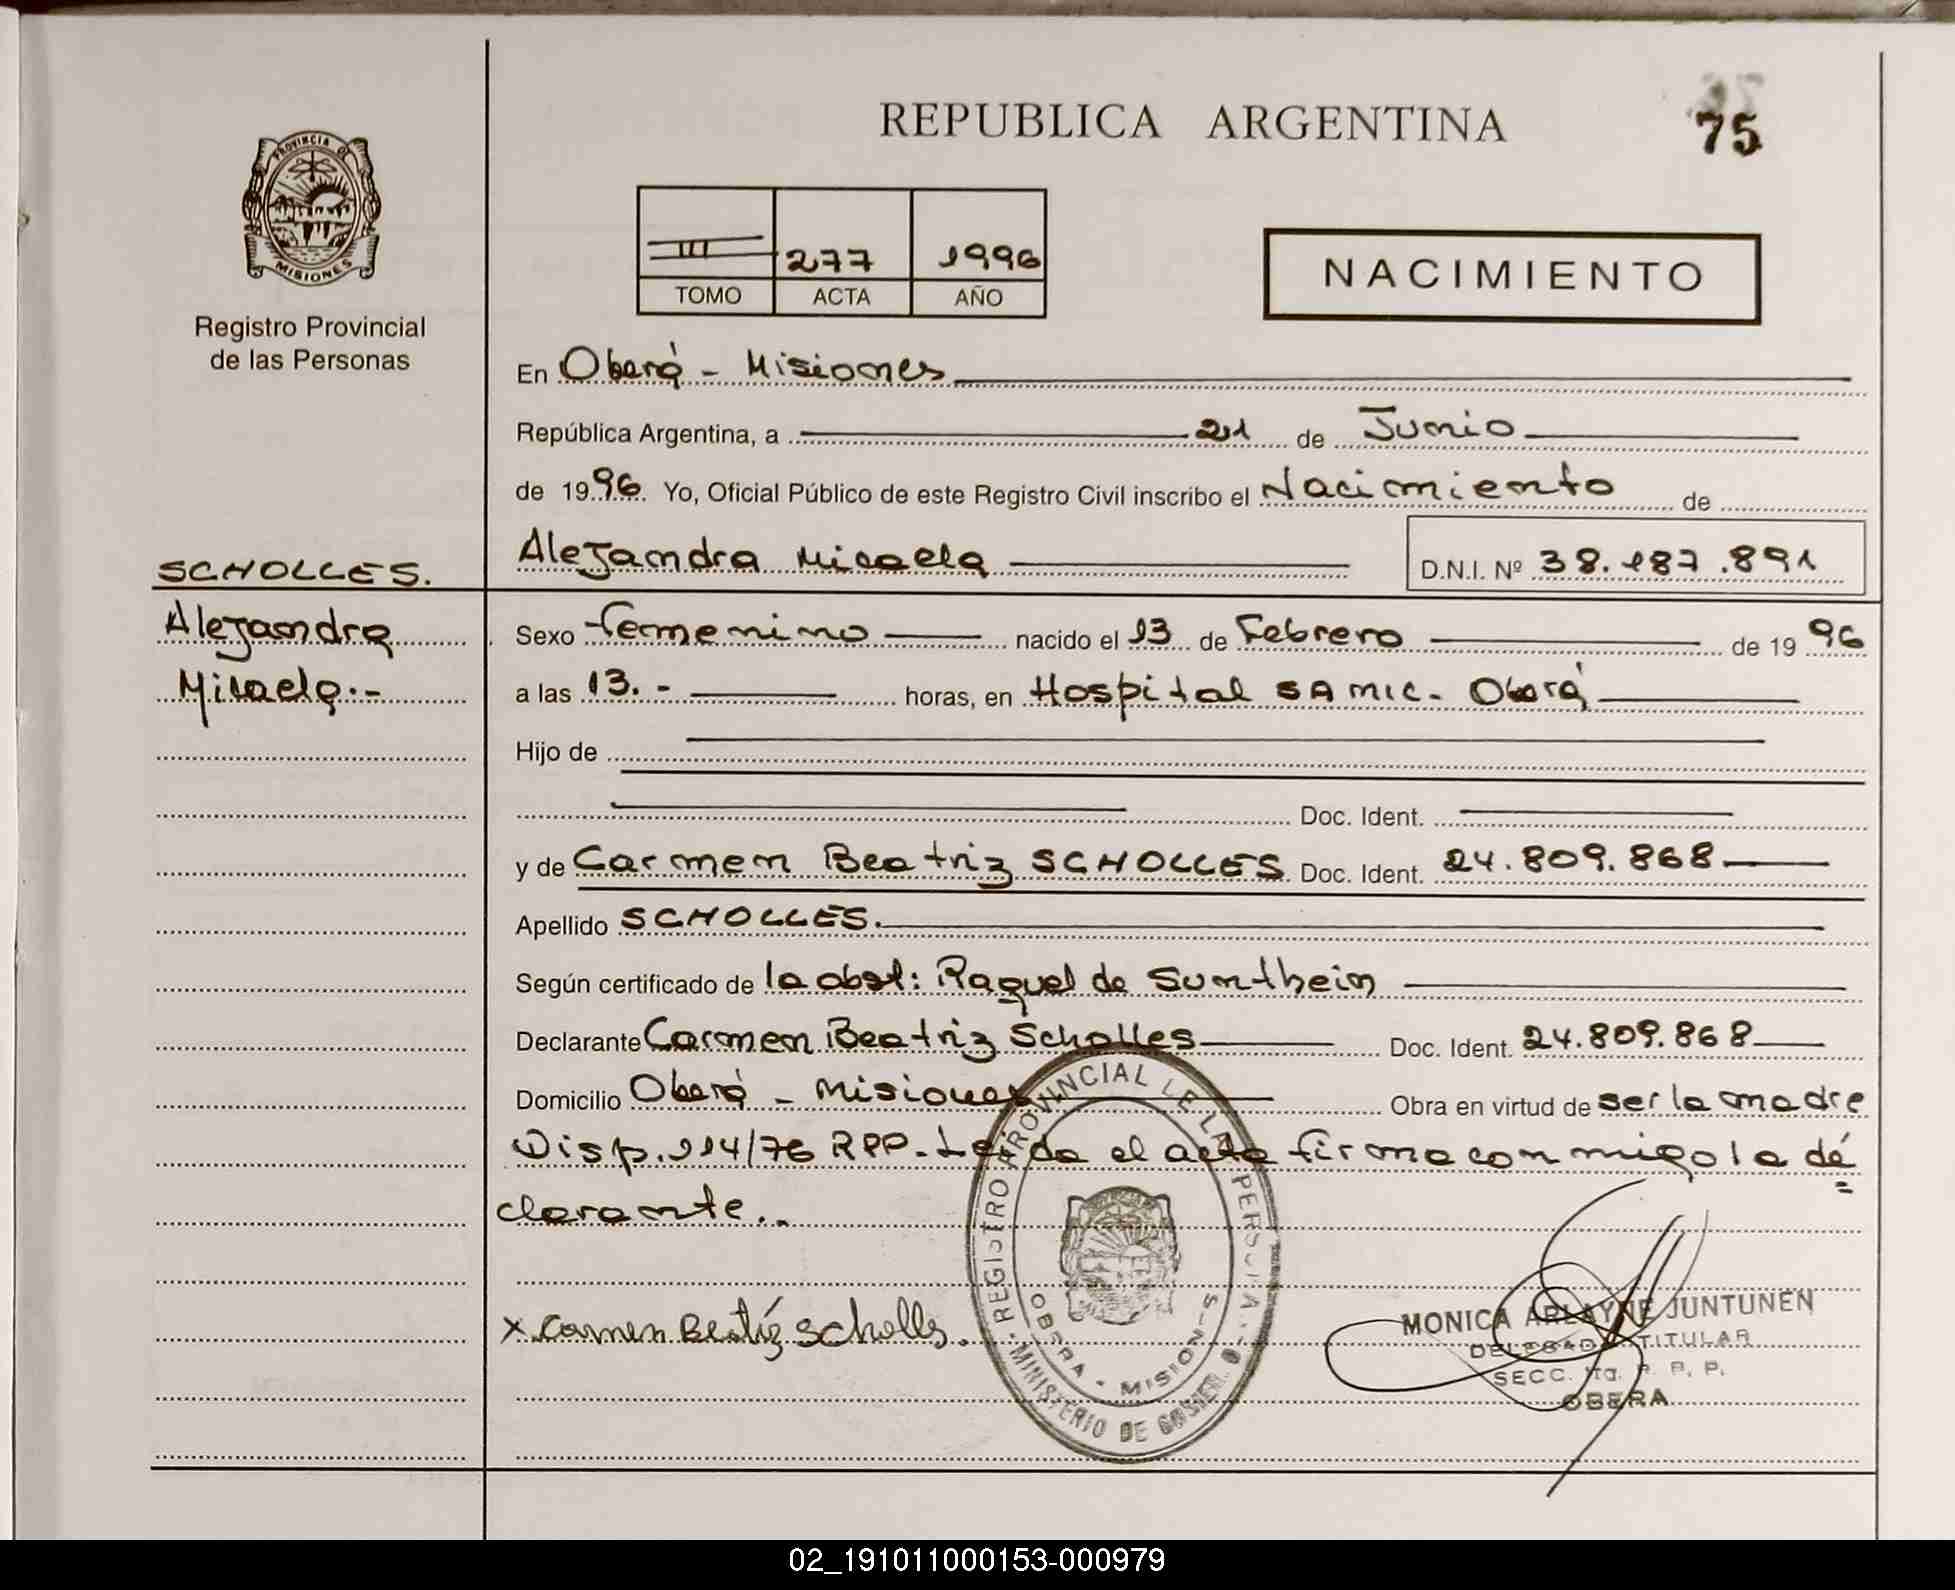 REPUBLICA ARGENTINA
75
PROVINCIA DE
MISIONES
Registro Provincial
de las Personas
III 277 1996
TOMO ACTA AÑO
NACIMIENTO
En Oberá - Misiones
República Argentina, a 21 de Junio
de 1996. Yo, Oficial Público de este Registro Civil inscribo el Nacimiento de
SCHOLLES.
Alejandra Micaela D.N.I. Nº 38.187.891
Alejandra
Micaela.-
Sexo femenino nacido el 13 de Febrero de 1996
a las 13.- horas, en Hospital SAMIC - Oberá
Hijo de
Doc. Ident.
y de Carmen Beatriz SCHOLLES Doc. Ident. 24.809.868
Apellido SCHOLLES.
Según certificado de la obst: Raquel de Sunthein
Declarante Carmen Beatriz Scholles Doc. Ident. 24.809.868
Domicilio Oberá - Misiones Obra en virtud de ser la madre
Disp. 114/76 RPP. Leída el acta firma conmigo la de
clarante..
x Carmen Beatriz Scholles.
REGISTRO PROVINCIAL DE LA PERSONA
OBERA - MISIONES
MINISTERIO DE GOBIERNO
MONICA ARLAYNE JUNTUNEN
DELEGADA TITULAR
SECC. 1ra. R. P. P.
OBERA
02_191011000153-000979